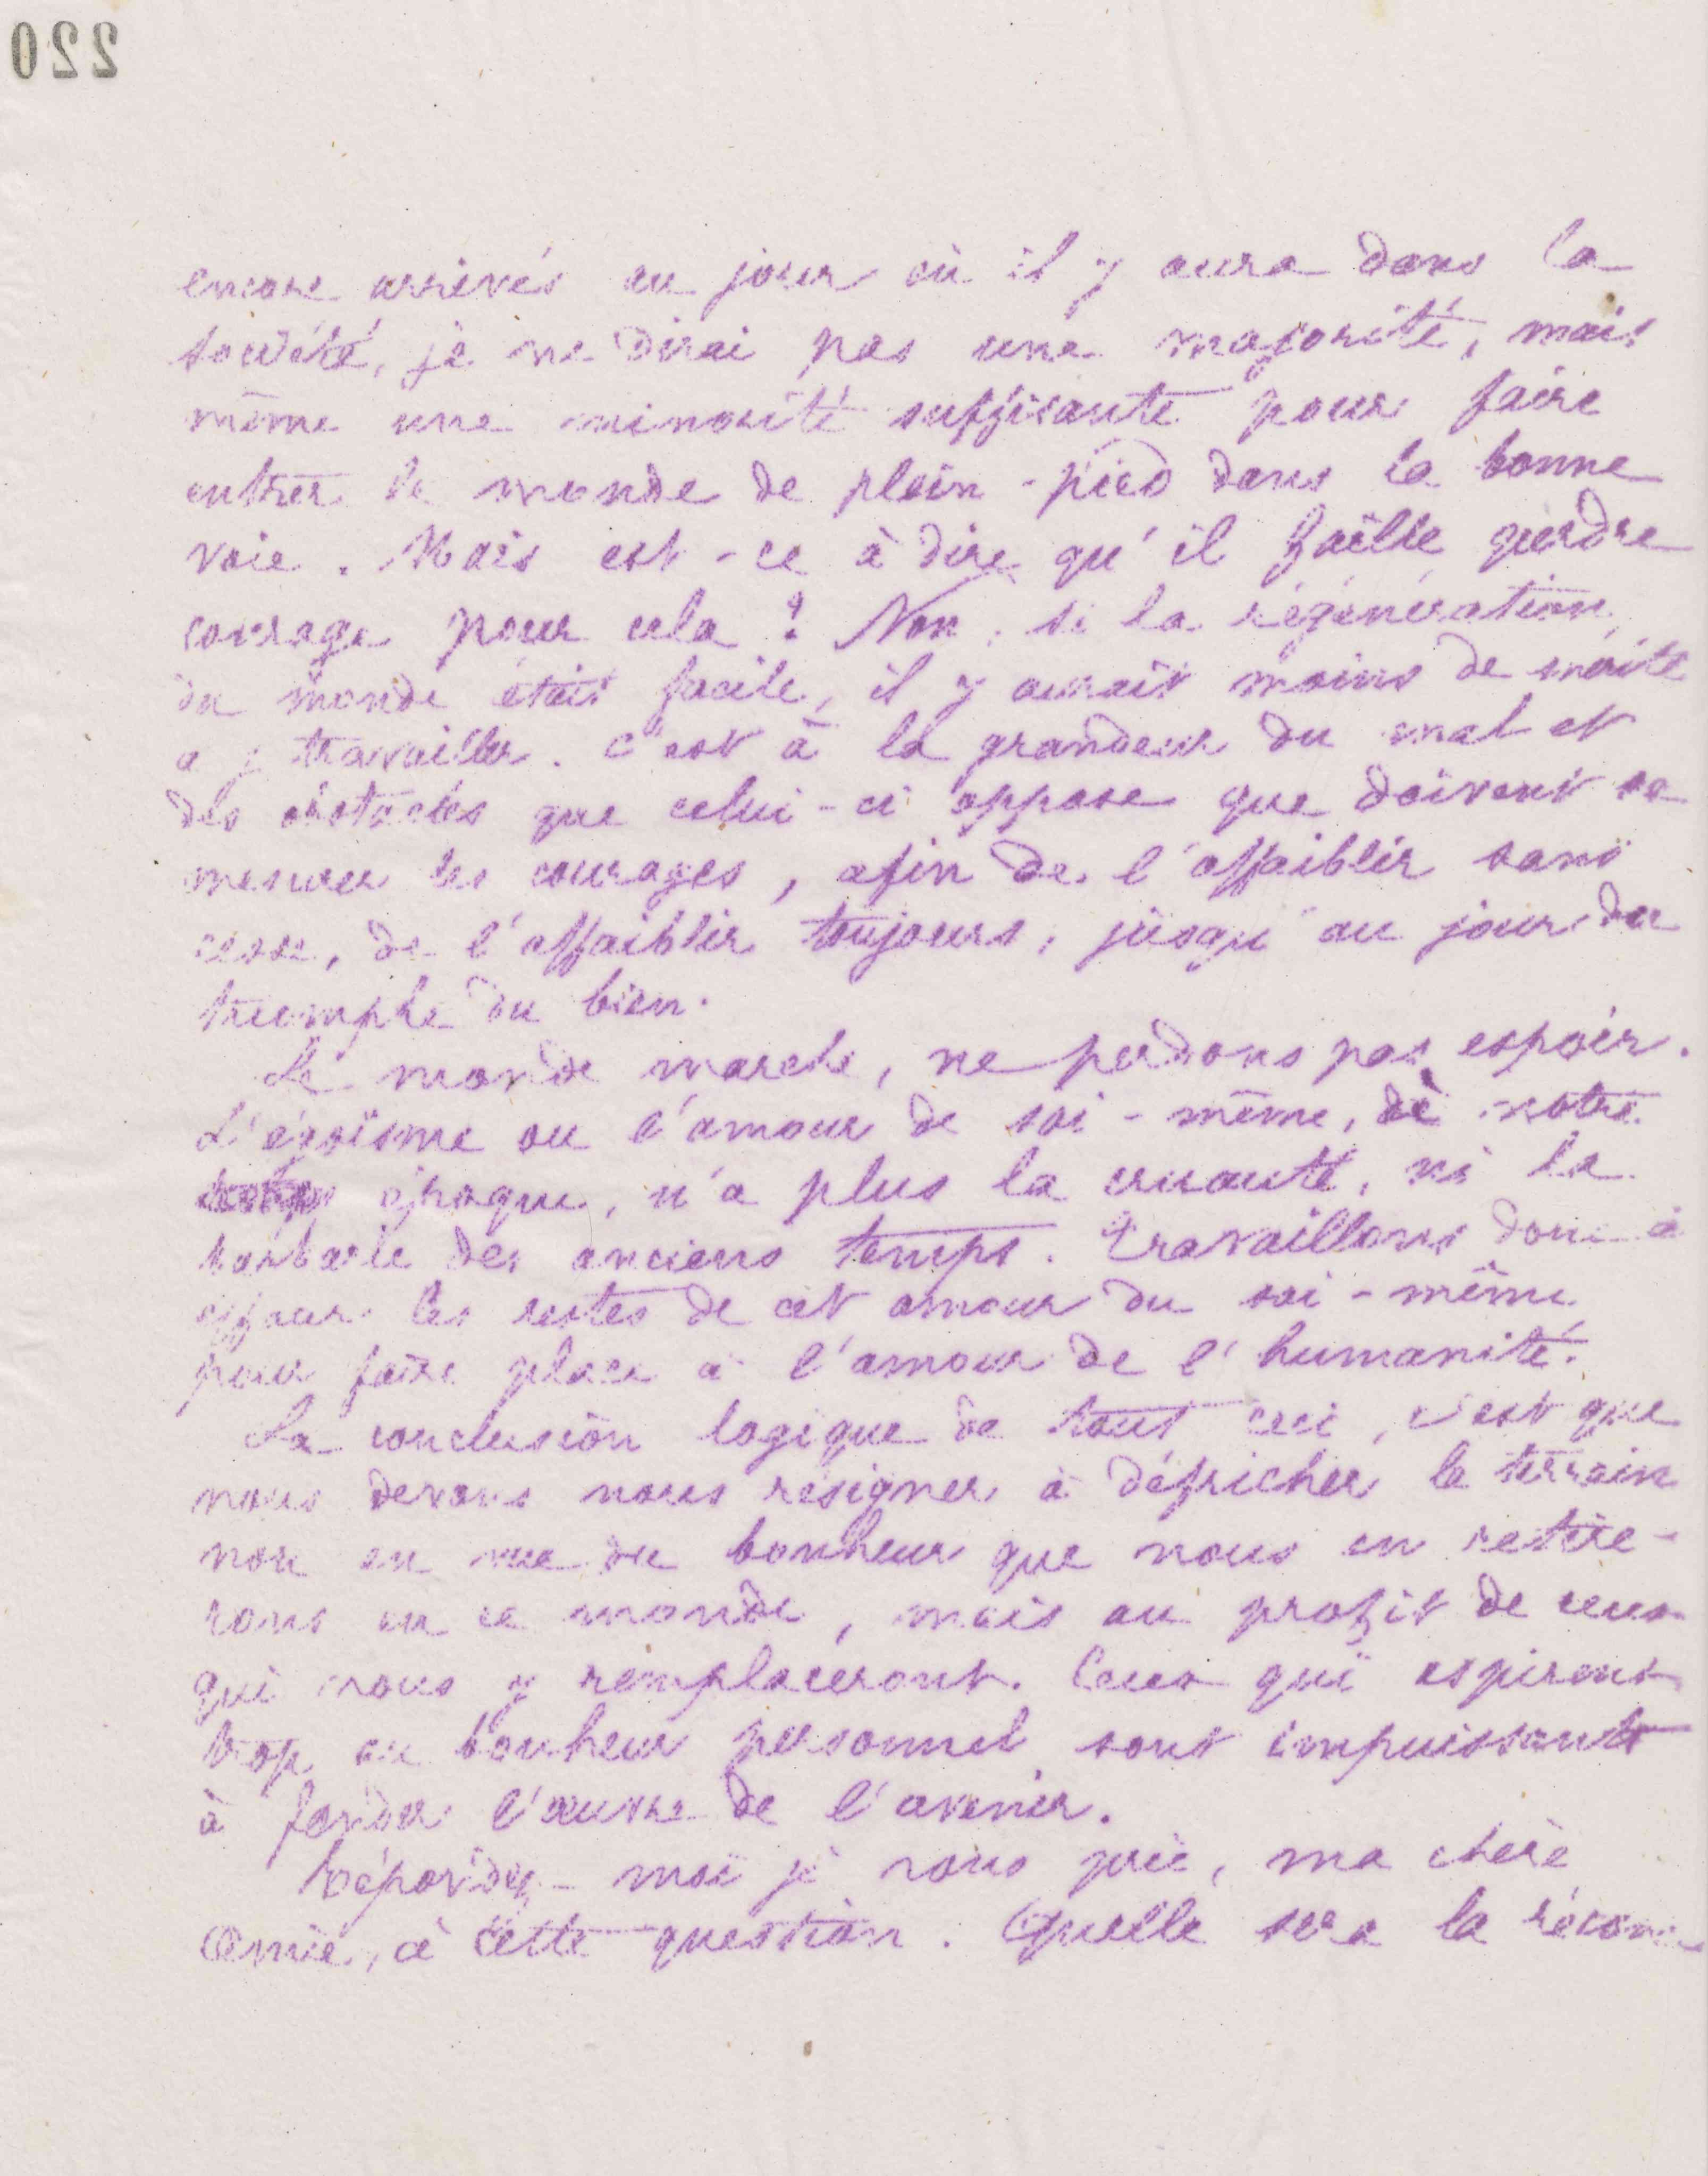 220
encore arrivés au jour où il y aura dans la
société, je ne dirai pas une majorité, mais
même une minorité suffisante pour faire
entrer le monde de plein-pied dans la bonne
voie. Mais est-ce à dire qu'il faille perdre
courage pour cela ? Non, si la régénération
du monde était facile, il y aurait moins de mérite
a y travailler. C'est à la grandeur du mal et
des obstacles que celui-ci oppose que doivent se
mesurer les courages, afin de l'affaiblir sans
cesse, de l'affaiblir toujours, jusqu'au jour du
triomphe du bien.
Le monde marche, ne perdons pas espoir.
L'égoïsme ou l'amour de soi-même, de notre
époque, n'a plus la cruauté, ni la
barbarie des anciens temps. Travaillons donc à
effacer les restes de cet amour du soi-même
pour faire place à l'amour de l'humanité.
La conclusion logique de tout ceci, c'est que
nous devons nous résigner à défricher le terrain
non en vue du bonheur que nous en retire-
rons en ce monde, mais au profit de ceux
qui nous y remplaceront. Ceux qui aspirent
trop au bonheur personnel sont impuissants
à fonder l'œuvre de l'avenir.
Répondez-moi je vous prie, ma chère
Amie, à cette question. Quelle sera la récom